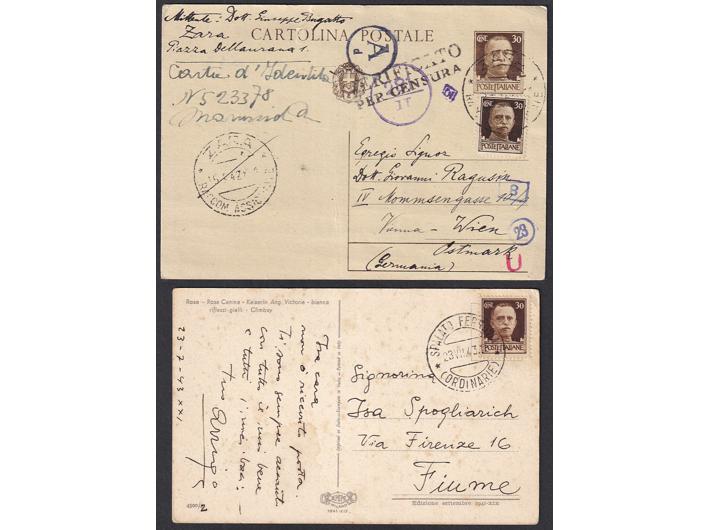 Mittente: Dott. Giuseppe Bugatto
Zara
CARTOLINA POSTALE
Piazza Dellaurana 1.
Carta d'Identità
N 523378
A
P
VERIFICATO
PER CENSURA
CENT. 30
POSTE ITALIANE
CENT. 30
POSTE ITALIANE
ZARA
RACCOM. ASSIC.
Egregio Signor
Dott. Giovanni Ragusin
IV Mommsengasse
Vienna - Wien
Ostmark
(Germania)
B
23
U
Rose - Rosa Canina - Kaiserin Aug. Victoria - bianca
riflessi gialli - Climbay
23-7-43 XXI.
Isa cara
non ò ricevuto posta.
Ti sono sempre accanto
con tutto il mio bene
e tutti i miei baci.
tuo Arrigo
4500/2
SPALATO FERR
23 VII 43
(ORDINARIE)
30
POSTE ITALIANE
Signorina
Isa Spogliarich
Via Firenze 16
Fiume
MILANO
1941-XIX
Edizione settembre 1941-XIX